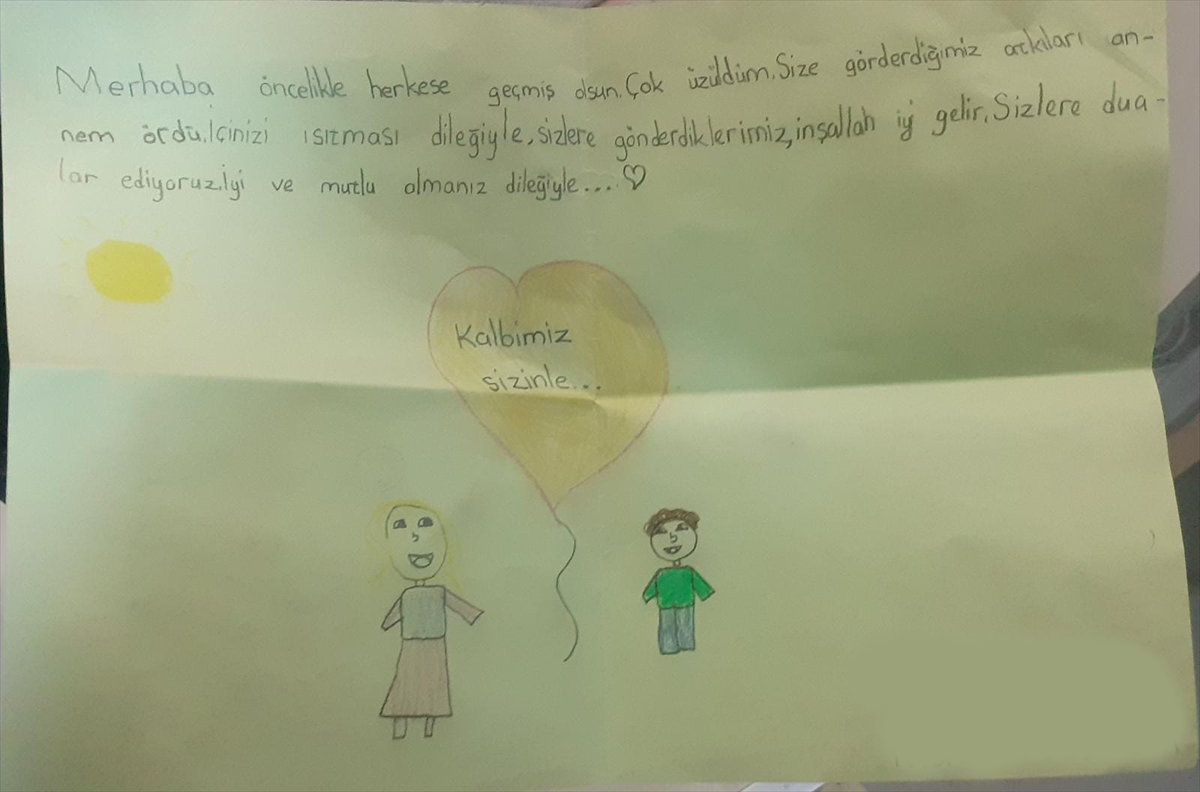 Merhaba öncelikle herkese geçmiş olsun. Çok üzüldüm. Size görderdiğimiz atkıları an-
nem ördü. İçinizi ısıtması dileğiyle, sizlere gönderdiklerimiz, inşallah iyi gelir. Sizlere dua-
lar ediyoruz. İyi ve mutlu olmanız dileğiyle... ♡
Kalbimiz
sizinle...